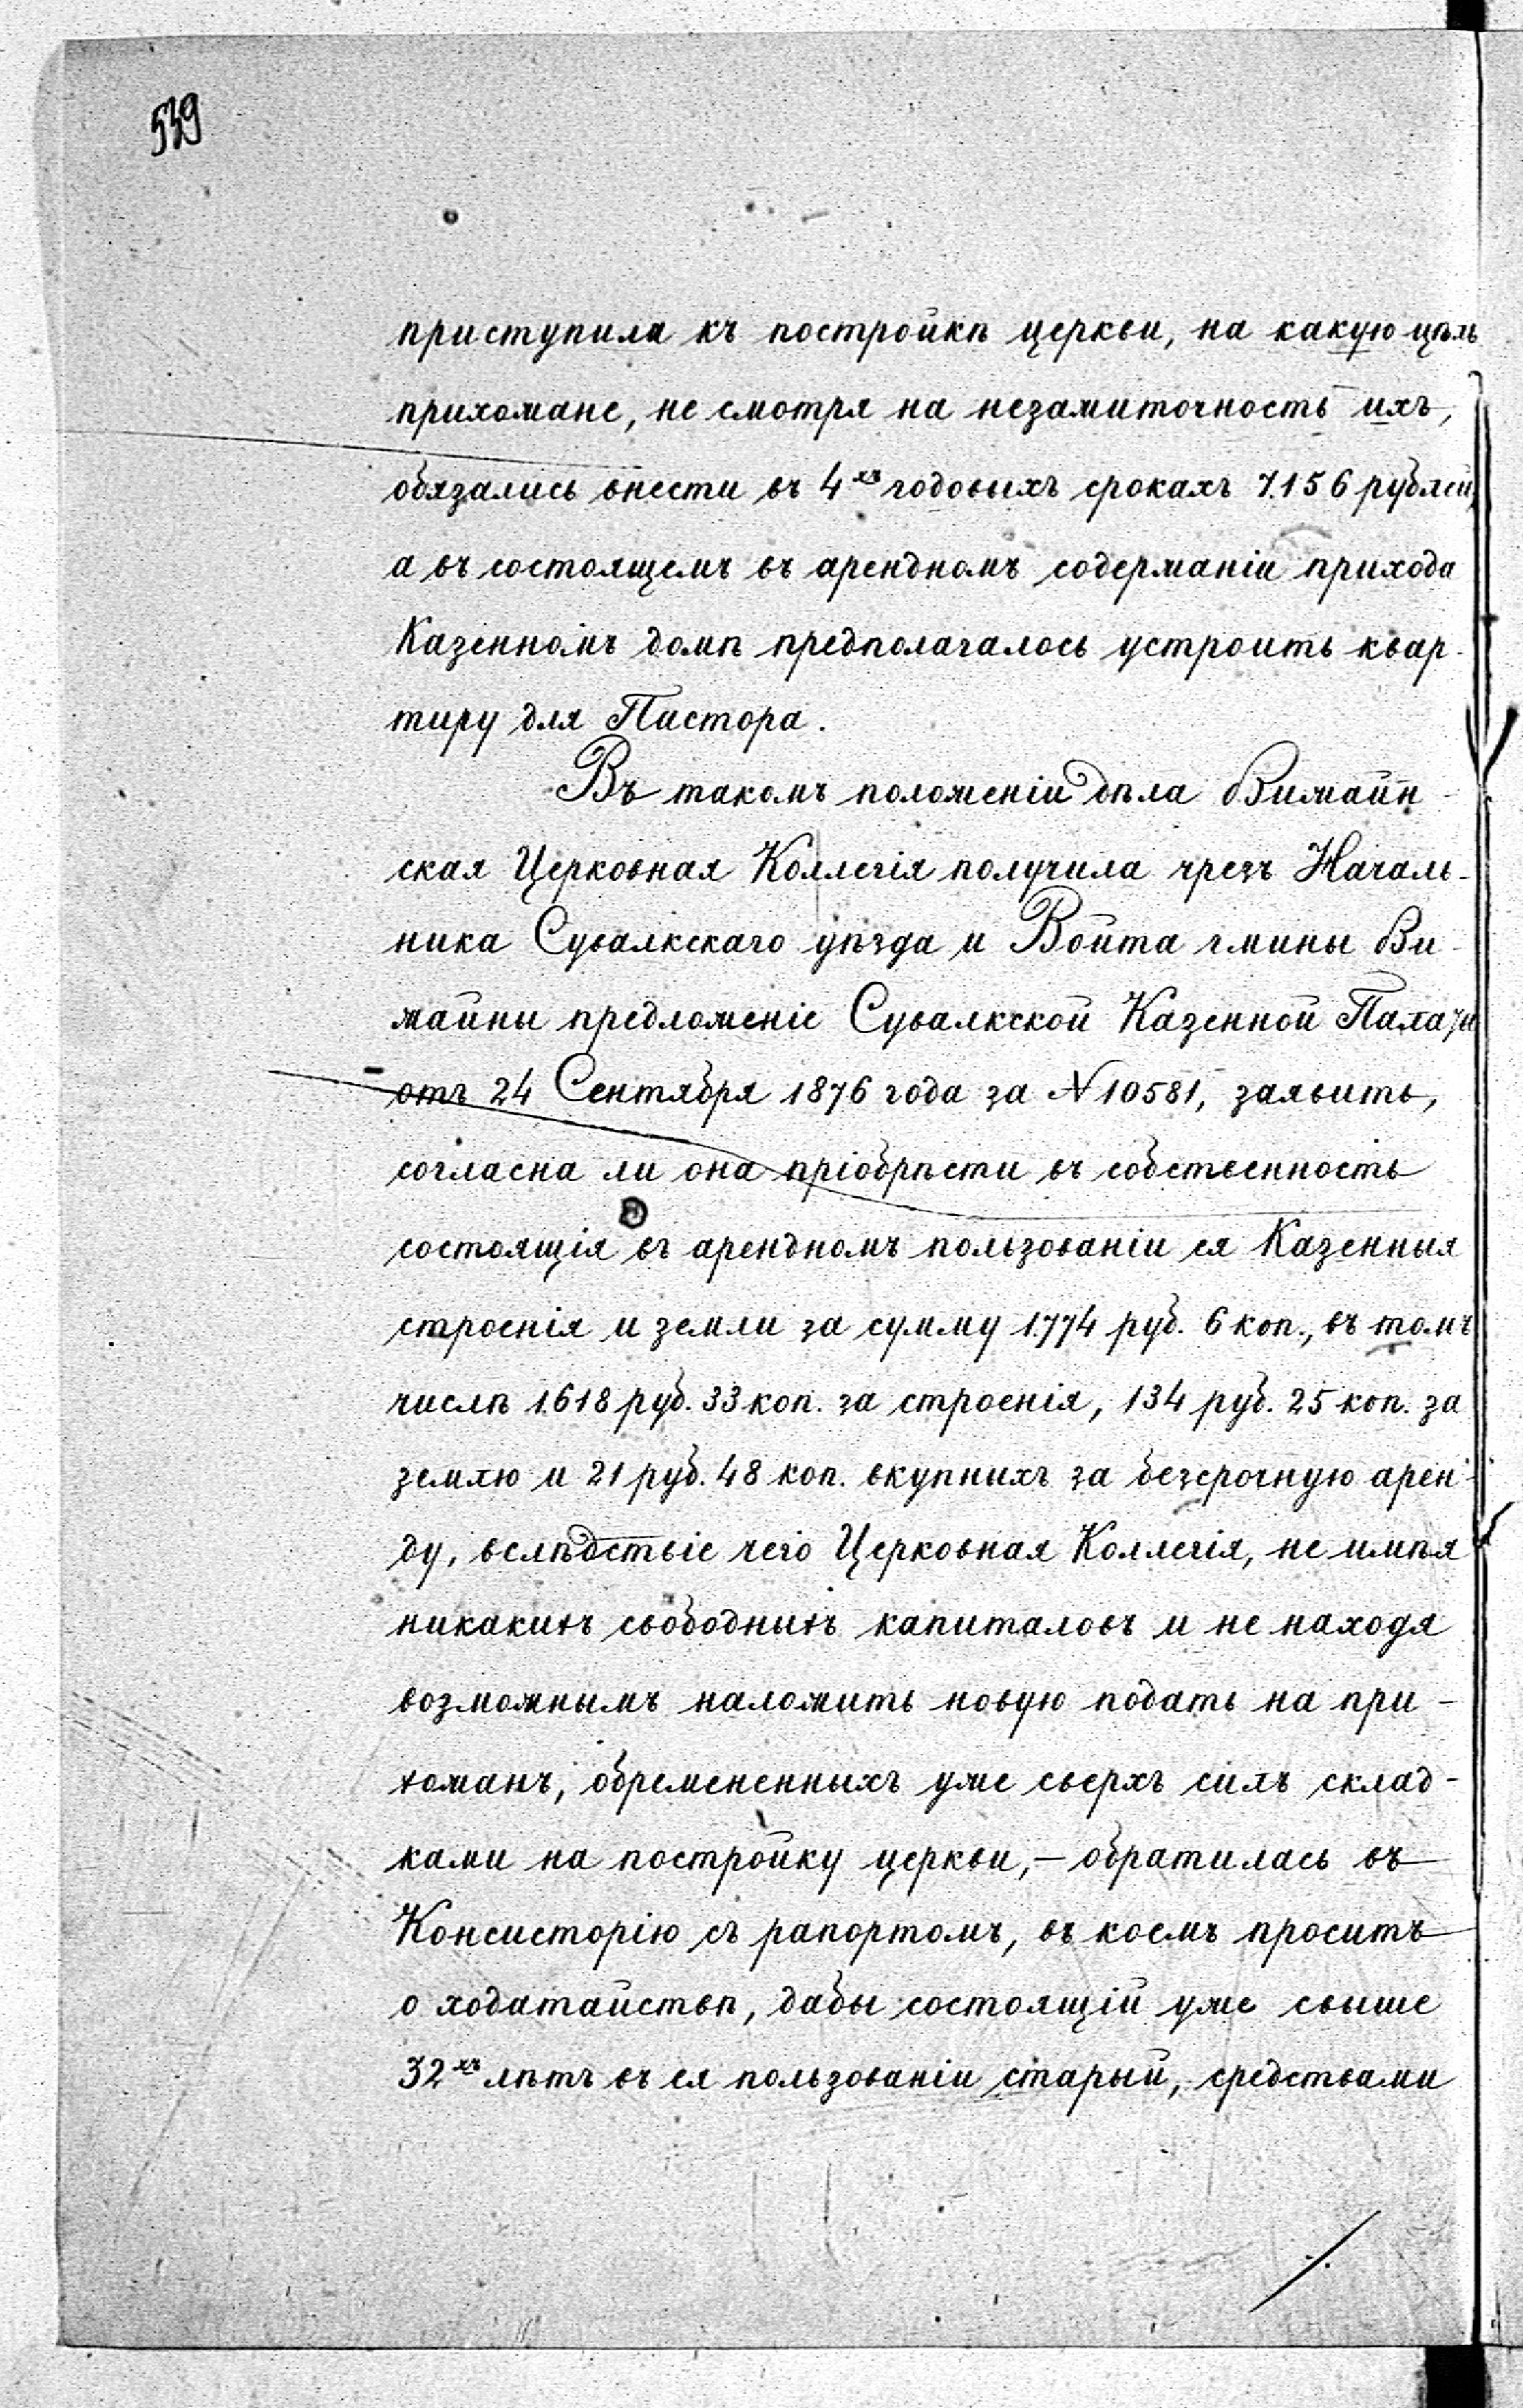 539
приступила къ постройкѣ церкви, на какую цѣль
прихожане, не смотря на незажиточность ихъ,
обязались внести въ 4хъ годовыхъ срокахъ 7.156 рублей,
а въ состоящемъ въ арендномъ содержаніи прихода
Казенномъ домѣ предполагалось устроить квар-
тиру для Пастора.
Въ такомъ положеніи дѣла Вижайн-
ская Церковная Коллегія получила чрезъ Началь-
ника Сувалкскаго уѣзда и Войта гмины Ви-
жайны предложеніе Сувалкской Казенной Палаты
отъ 24 Сентября 1876 года за № 10581, заявить,
согласна ли она пріобрѣсти въ собственность
состоящія въ арендномъ пользованіи ея Казенныя
строенія и земли за сумму 1.774 руб. 6 коп., въ томъ
числѣ 1.618 руб. 33 коп. за строенія, 134 руб. 25 коп. за
землю и 21 руб. 48 коп. вкупныхъ за безсрочную арен-
ду, вслѣдствіе чего Церковная Коллегія, не имѣя
никакихъ свободныхъ капиталовъ и не находя
возможнымъ наложить новую подать на при-
хожанъ, обремененныхъ уже сверхъ силъ склад-
ками на постройку церкви,— обратилась въ
Консисторію съ рапортомъ, въ коемъ проситъ
о ходатайствѣ, дабы состоящій уже свыше
32хъ лѣтъ въ ея пользованіи старый, средствами